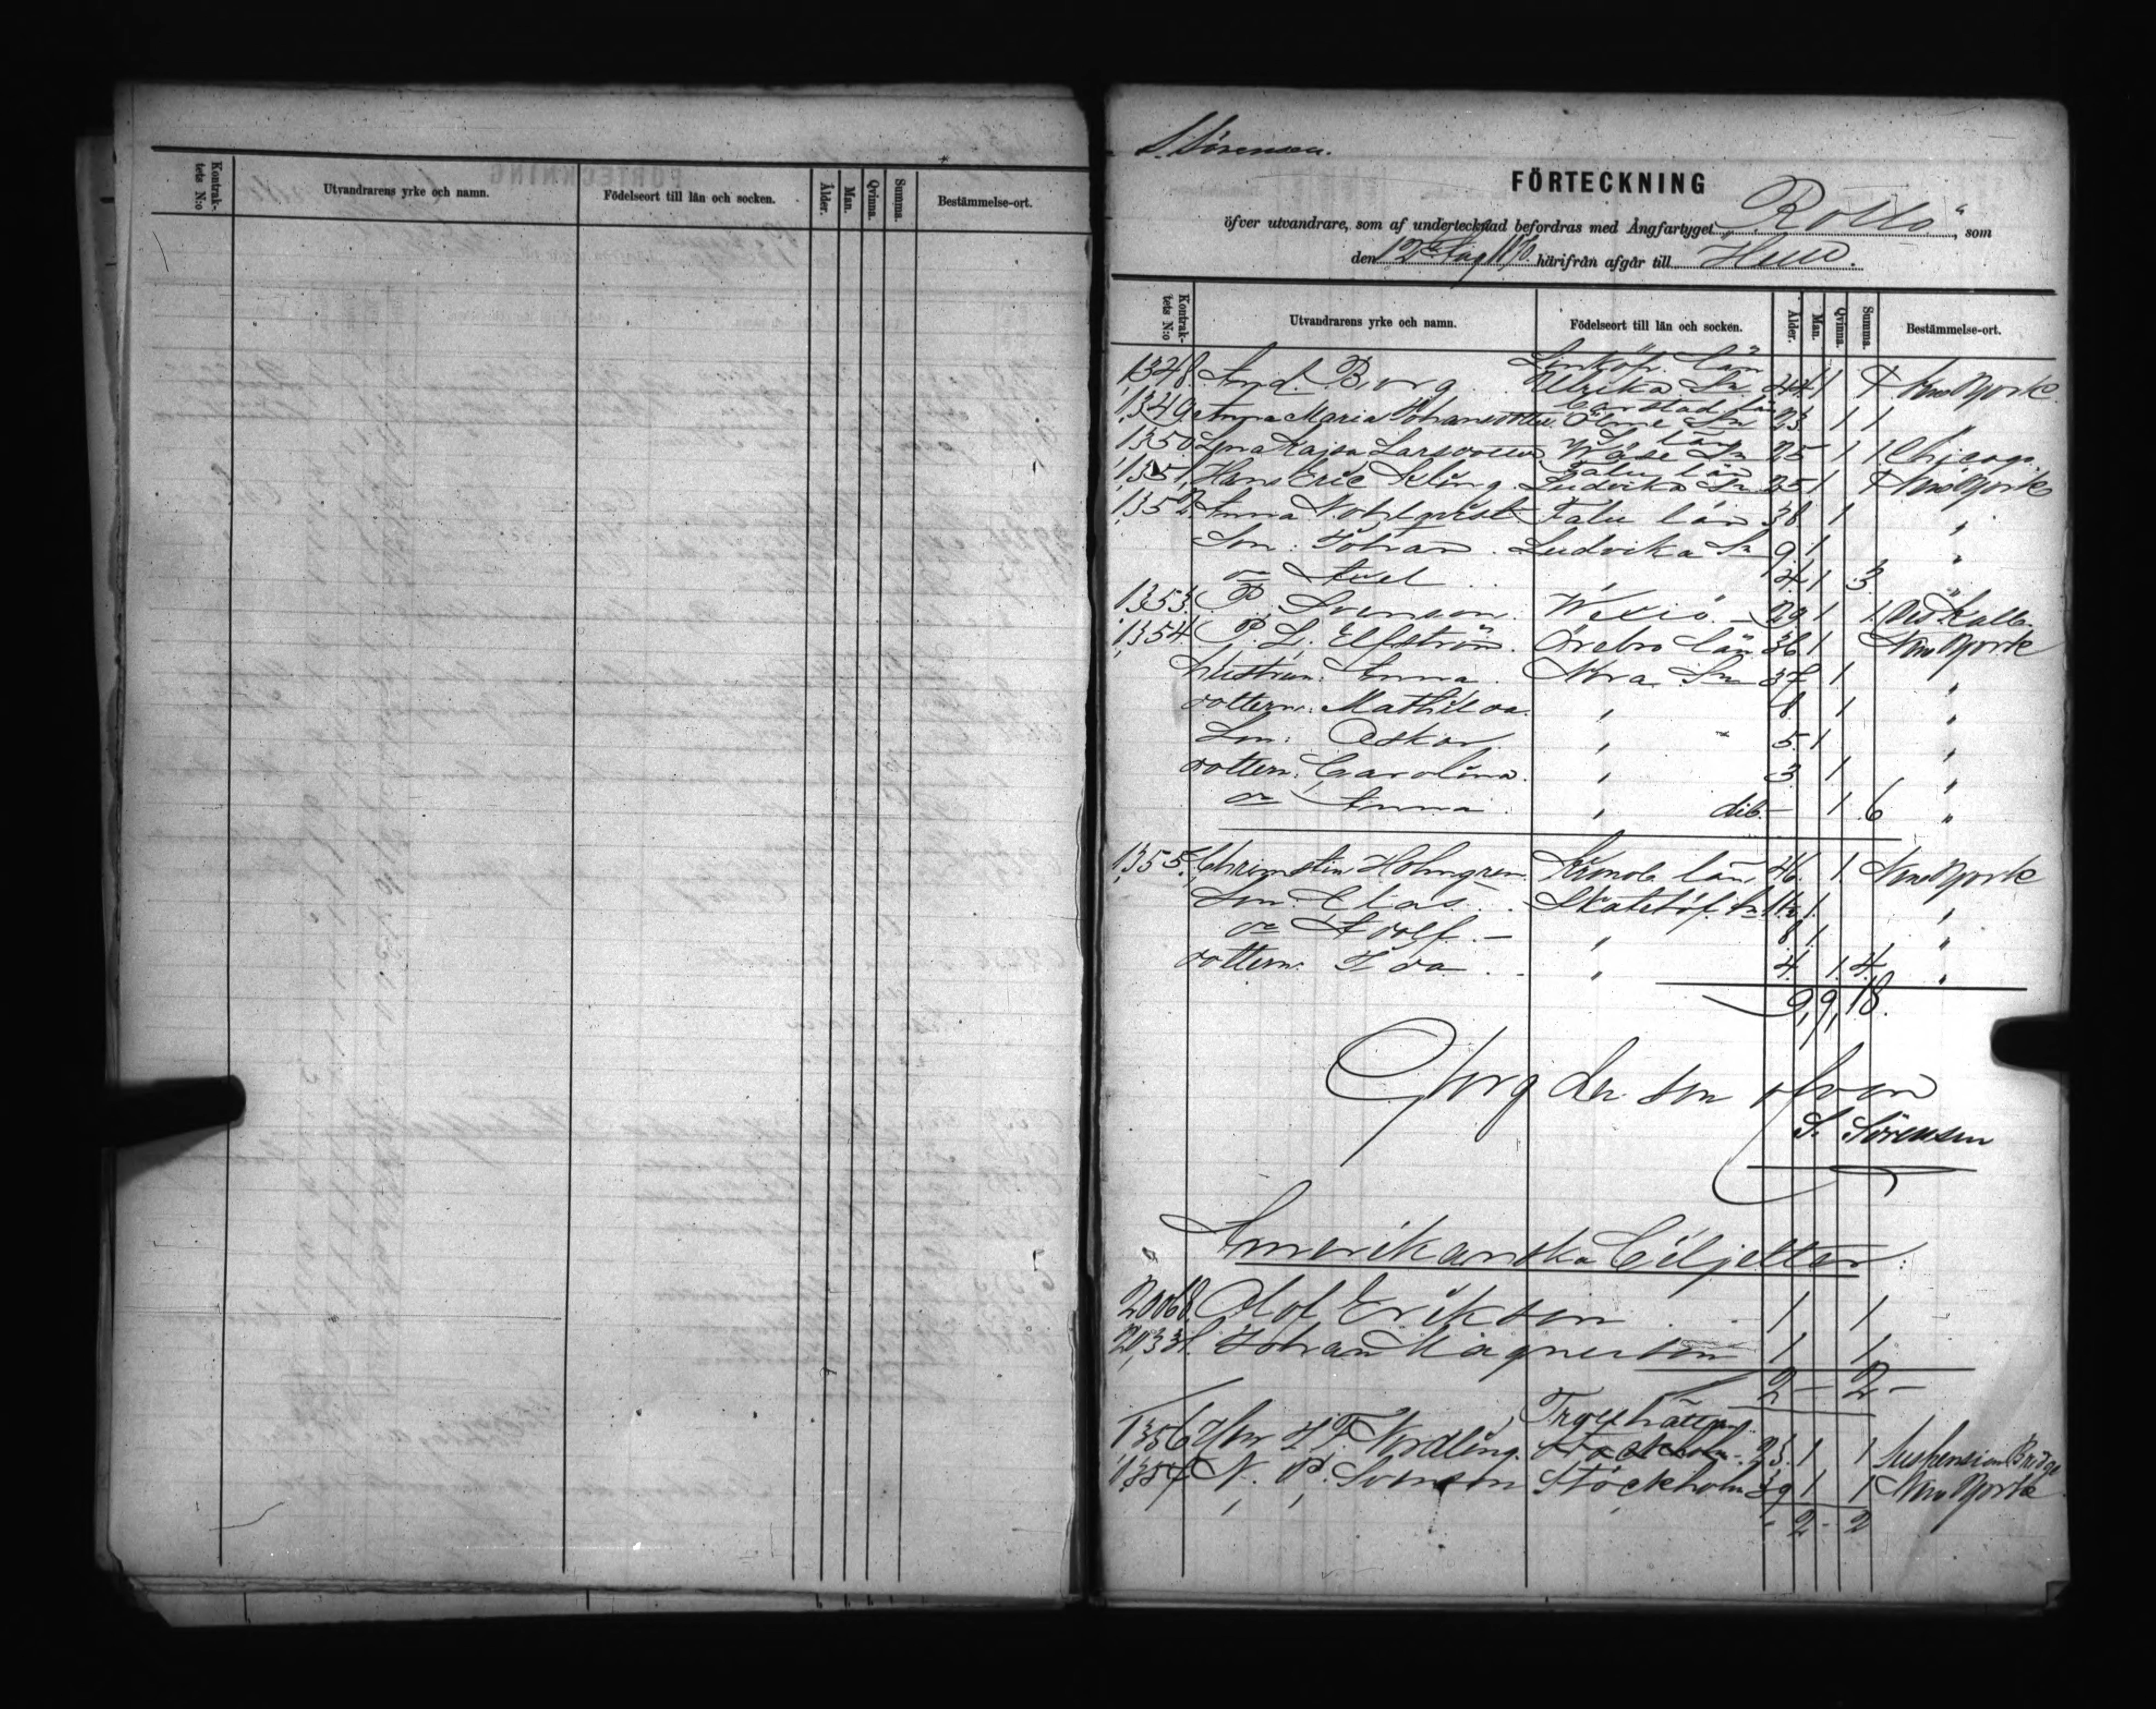 Kontrak-
tets N:o
Utvandrarens yrke och namn.
Födelseort till län och socken.
Ålder.
Man.
Qvinna.
Summa.
Bestämmelse-ort.
S. Sörensen.
FÖRTECKNING
öfver utvandrare, som af undertecknad befordras med Ångfartyget "Rollo", som
den 12 Aug 1870 härifrån afgår till Hull.
Kontrak-
tets N:o
Utvandrarens yrke och namn.
Födelseort till län och socken.
Ålder.
Man.
Qvinna.
Summa.
Bestämmelse-ort.
Linköp. län
1348. And. Borg. Ulrika Sn 44 1 1 New York
Carlstad län
1349 Anna Maria Johansdotter Ölme Sn 23 1 1 "
län
1350 Lena Kajsa Larsdotter Wäse Sn 25 1 1 Chicago.
Falu län
1351, Hans Eric Kling. Ludvika Sn 25 1 1 New York
1352. Anna Nohlqvist Falu län 38 1 "
Son: Johan. Ludvika Sn 9 1 "
do Axel 4 1 3 "
1353. P. Svenson. Wexiö. 29 1 1
1354 P. L. Elfström. Örebro län 36 1 New York
hustrun. Anna. Nora Sn 37 1 "
dottern. Mathilda. " 8 1 "
Son: Oskar. " 5 1 "
dottern. Carolina. " 3 1 "
do Anna. " dib. 1 6 "
1355. Christin Holmgren. Kronob. län 46. 1. New York
Son. Elas. Skatelöf Sn 11 1 "
do Adolf. " 8 1 "
dottern. Ida. " 4. 1. 4. "
9, 9, 18.
Georg som ofvan
S. Sörensen
Amerikanska Biljetter:
20068. Olof Erikson 1 1
Johan Magnuson 1 1
2 – 2 –
Trollhättan
1356 Herr J. F. Nordling. Stockholm. 23. 1 1 Suspension Bridge
1357 N. P. Svenson Stockholm 39 1 1 New York
2 – 2